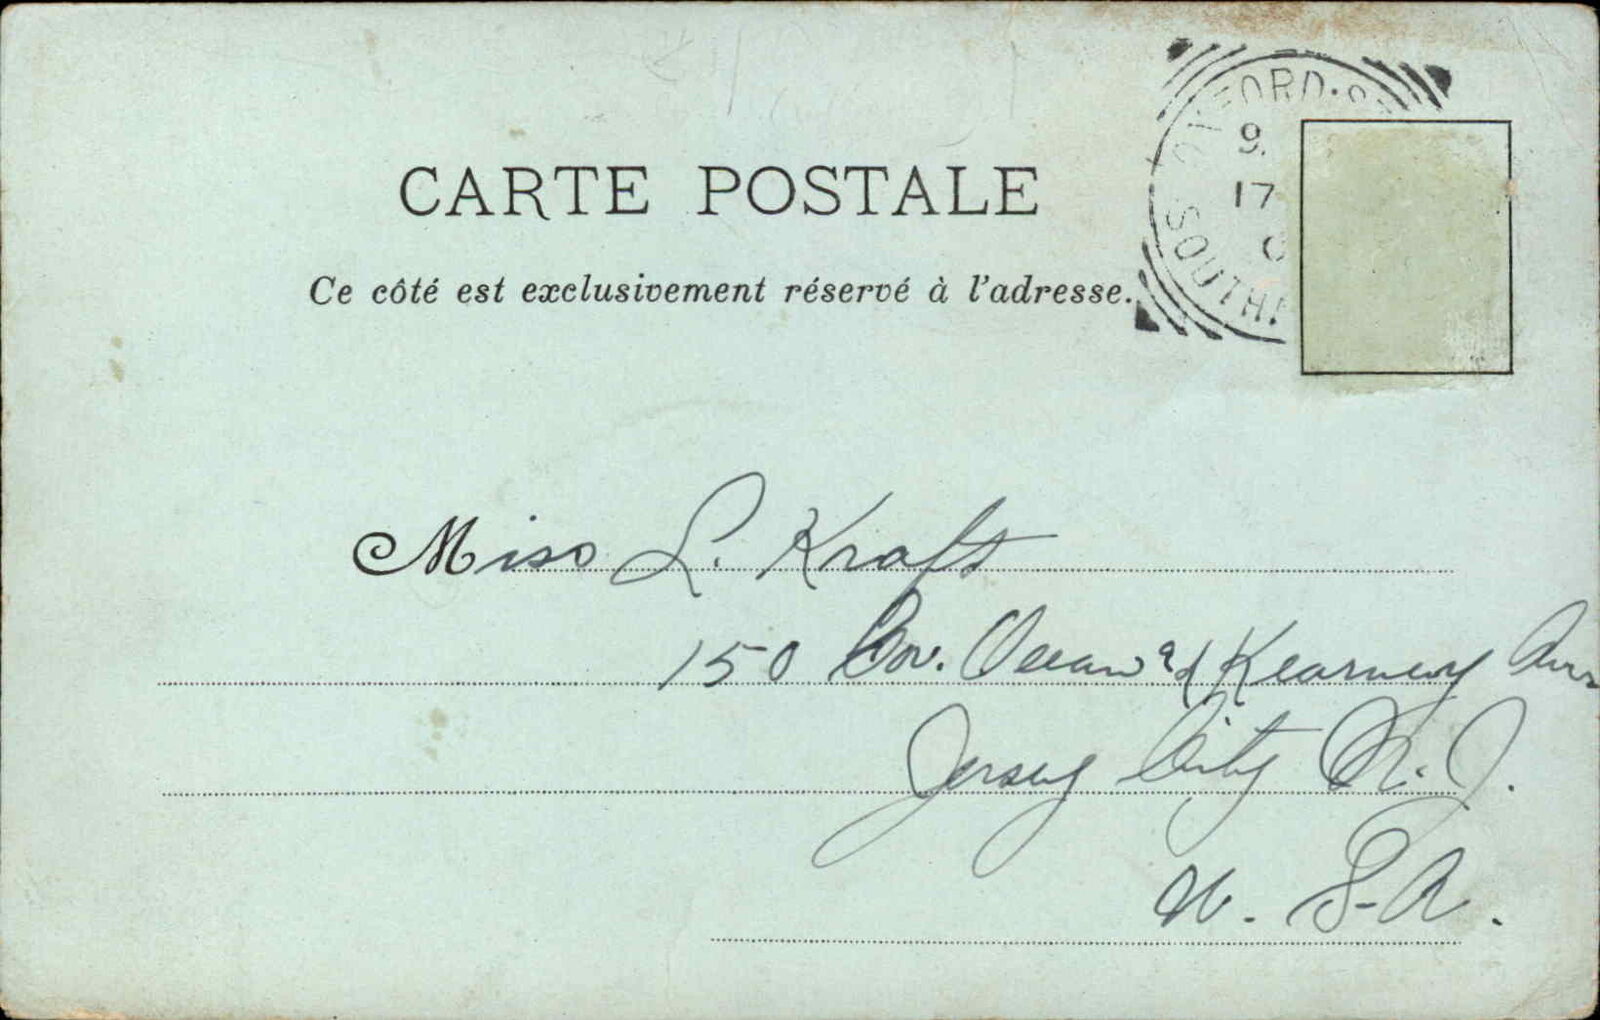 OXFORD.ST
9.
17
SOUTH
CARTE POSTALE
Ce côté est exclusivement réservé à l'adresse.
Miss L. Kraft
150 Cor. Ocean and Kearney Ave
Jersey City N. J.
U. S. A.